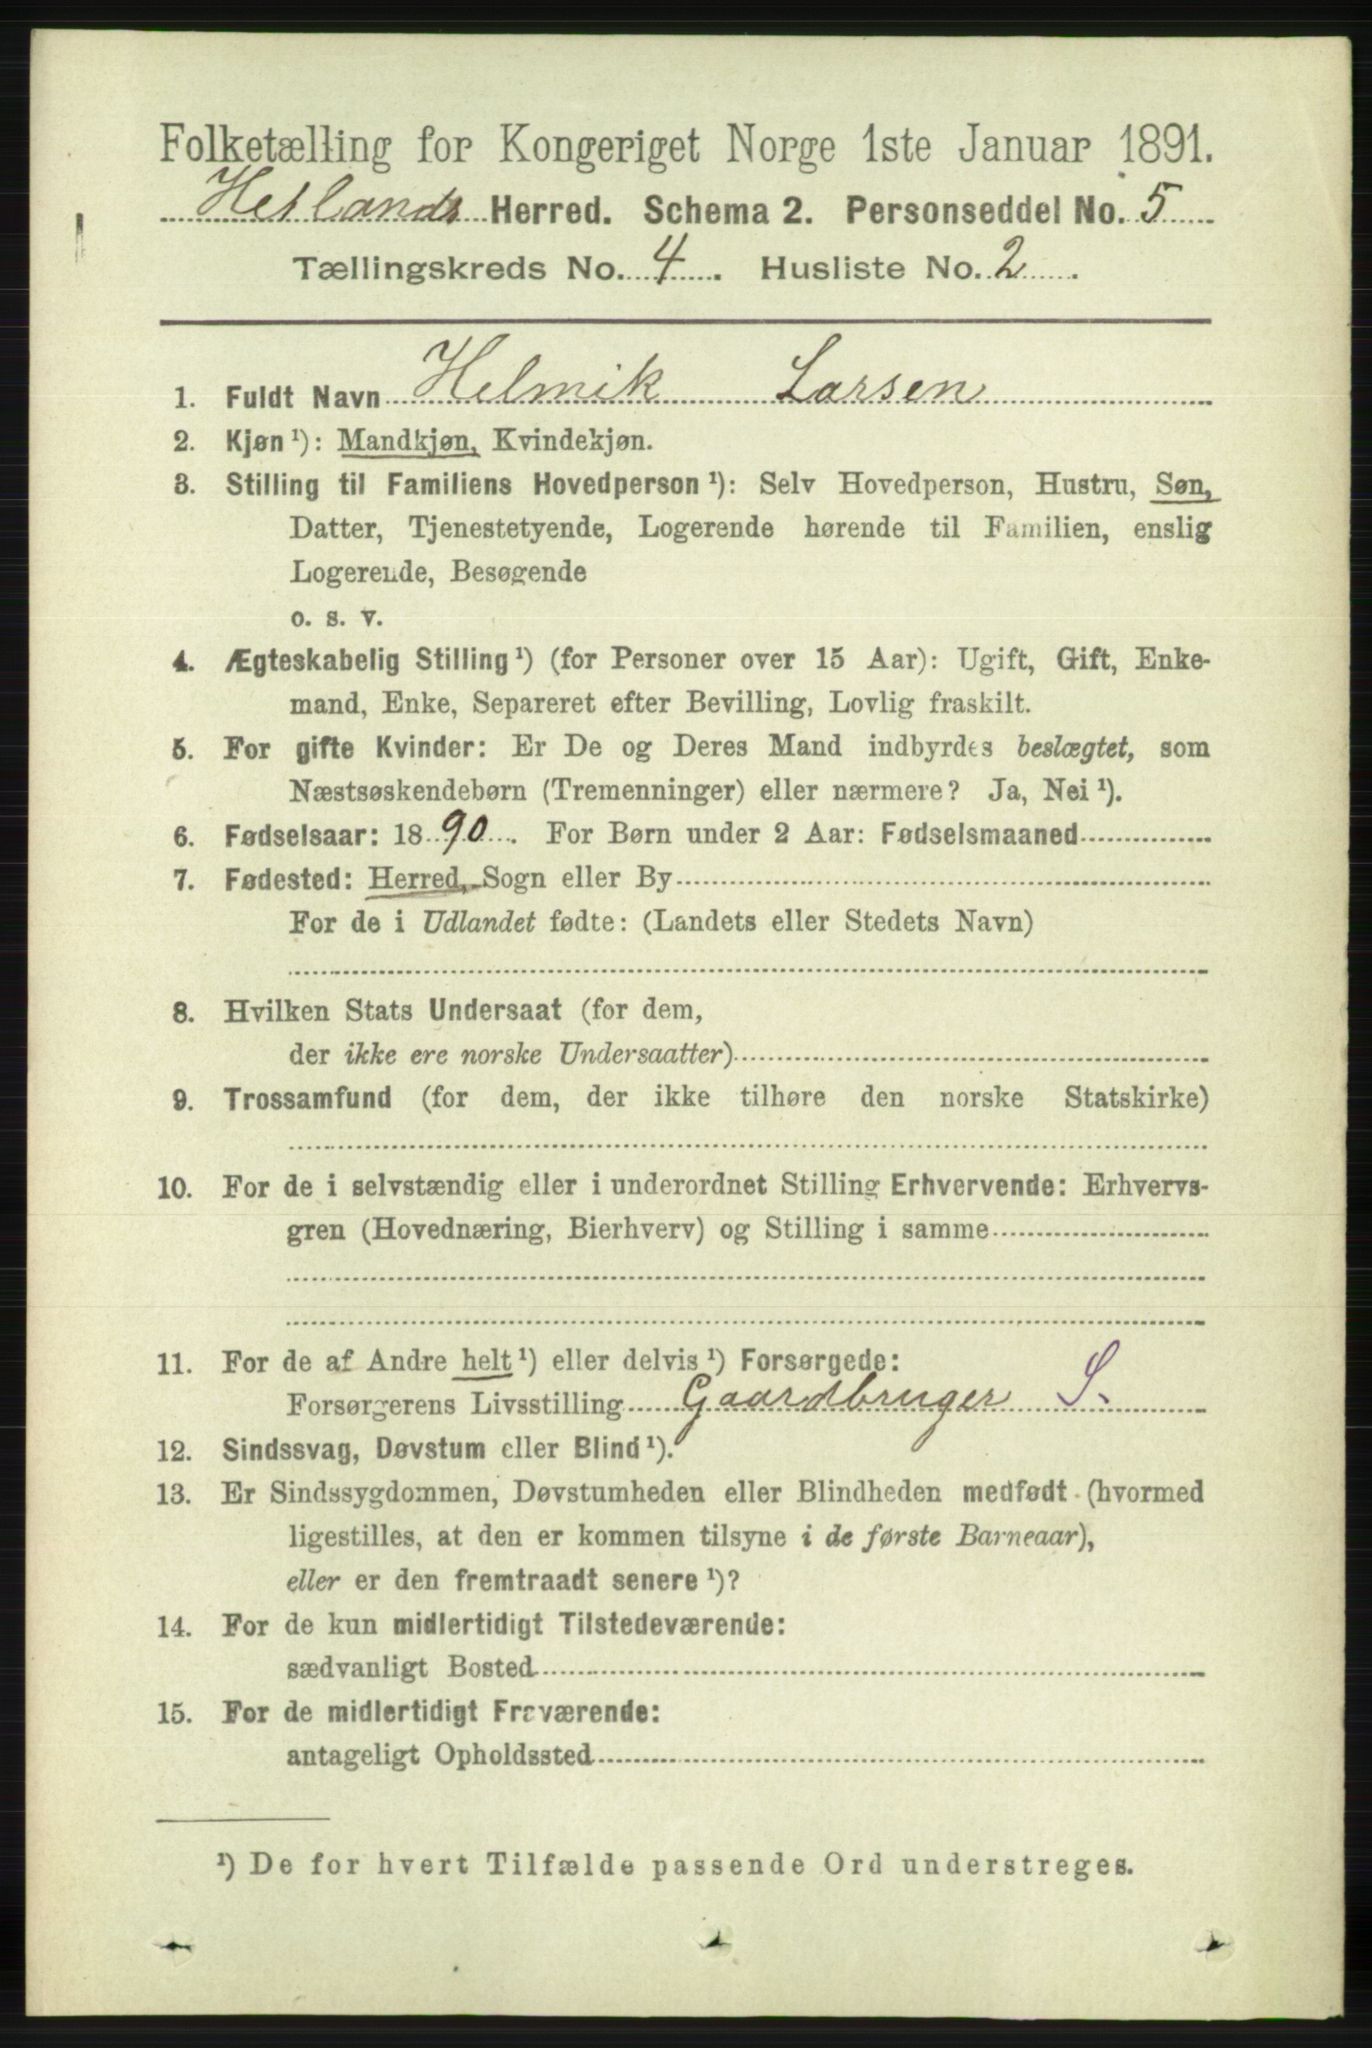 Folketælling for Kongeriget Norge 1ste Januar 1891.
Hetlands Herred. Schema 2. Personseddel No. 5
Tællingskreds No. 4. Husliste No. 2.
1. Fuldt Navn Helmik Larsen
2. Kjøn ¹): Mandkjøn, Kvindekjøn.
3. Stilling til Familiens Hovedperson ¹): Selv Hovedperson, Hustru, Søn,
Datter, Tjenestetyende, Logerende hørende til Familien, enslig
Logerende, Besøgende
o. s. v.
4. Ægteskabelig Stilling ¹) (for Personer over 15 Aar): Ugift, Gift, Enke-
mand, Enke, Separeret efter Bevilling, Lovlig fraskilt.
5. For gifte Kvinder: Er De og Deres Mand indbyrdes beslægtet, som
Næstsøskendebørn (Tremenninger) eller nærmere? Ja, Nei ¹).
6. Fødselsaar: 1890. For Børn under 2 Aar: Fødselsmaaned
7. Fødested: Herred, Sogn eller By
For de i Udlandet fødte: (Landets eller Stedets Navn)
8. Hvilken Stats Undersaat (for dem,
der ikke ere norske Undersaatter)
9. Trossamfund (for dem, der ikke tilhøre den norske Statskirke)
10. For de i selvstændig eller i underordnet Stilling Erhvervende: Erhvervs-
gren (Hovednæring, Bierhverv) og Stilling i samme
11. For de af Andre helt ¹) eller delvis ¹) Forsørgede:
Forsørgerens Livsstilling Gaardbruger S.
12. Sindssvag, Døvstum eller Blind ¹).
13. Er Sindssygdommen, Døvstumheden eller Blindheden medfødt (hvormed
ligestilles, at den er kommen tilsyne i de første Barneaar),
eller er den fremtraadt senere ¹)?
14. For de kun midlertidigt Tilstedeværende:
sædvanligt Bosted
15. For de midlertidigt Fraværende:
antageligt Opholdssted
¹) De for hvert Tilfælde passende Ord understreges.